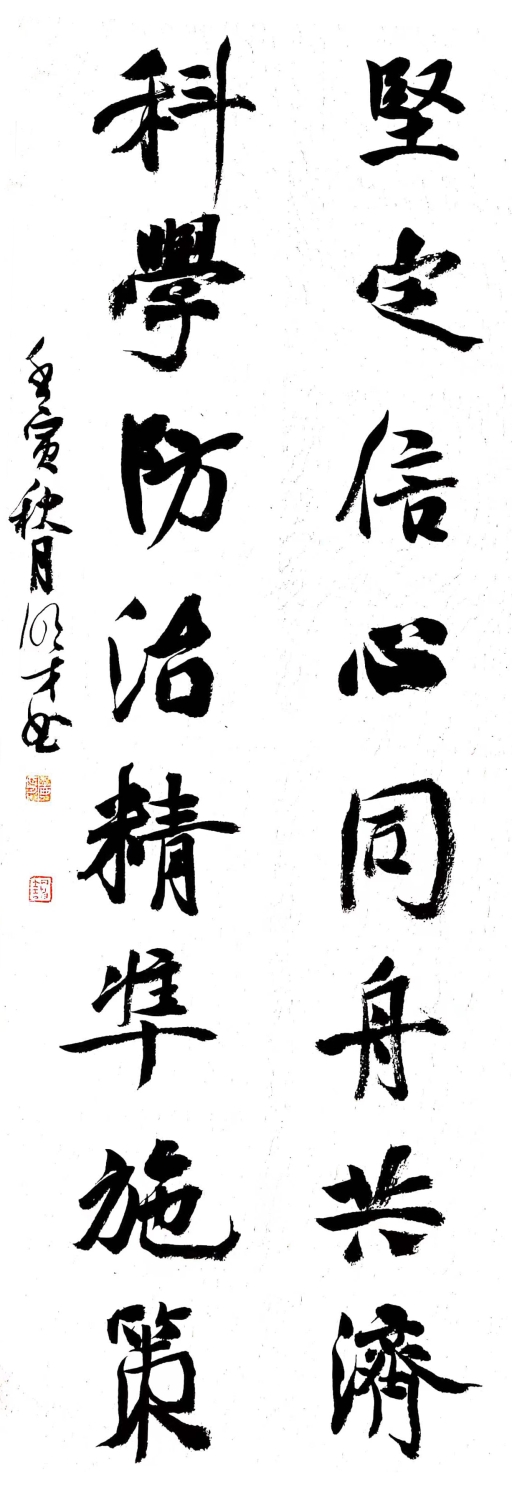 堅定信心同舟共濟
科學防治精準施策
壬寅秋月